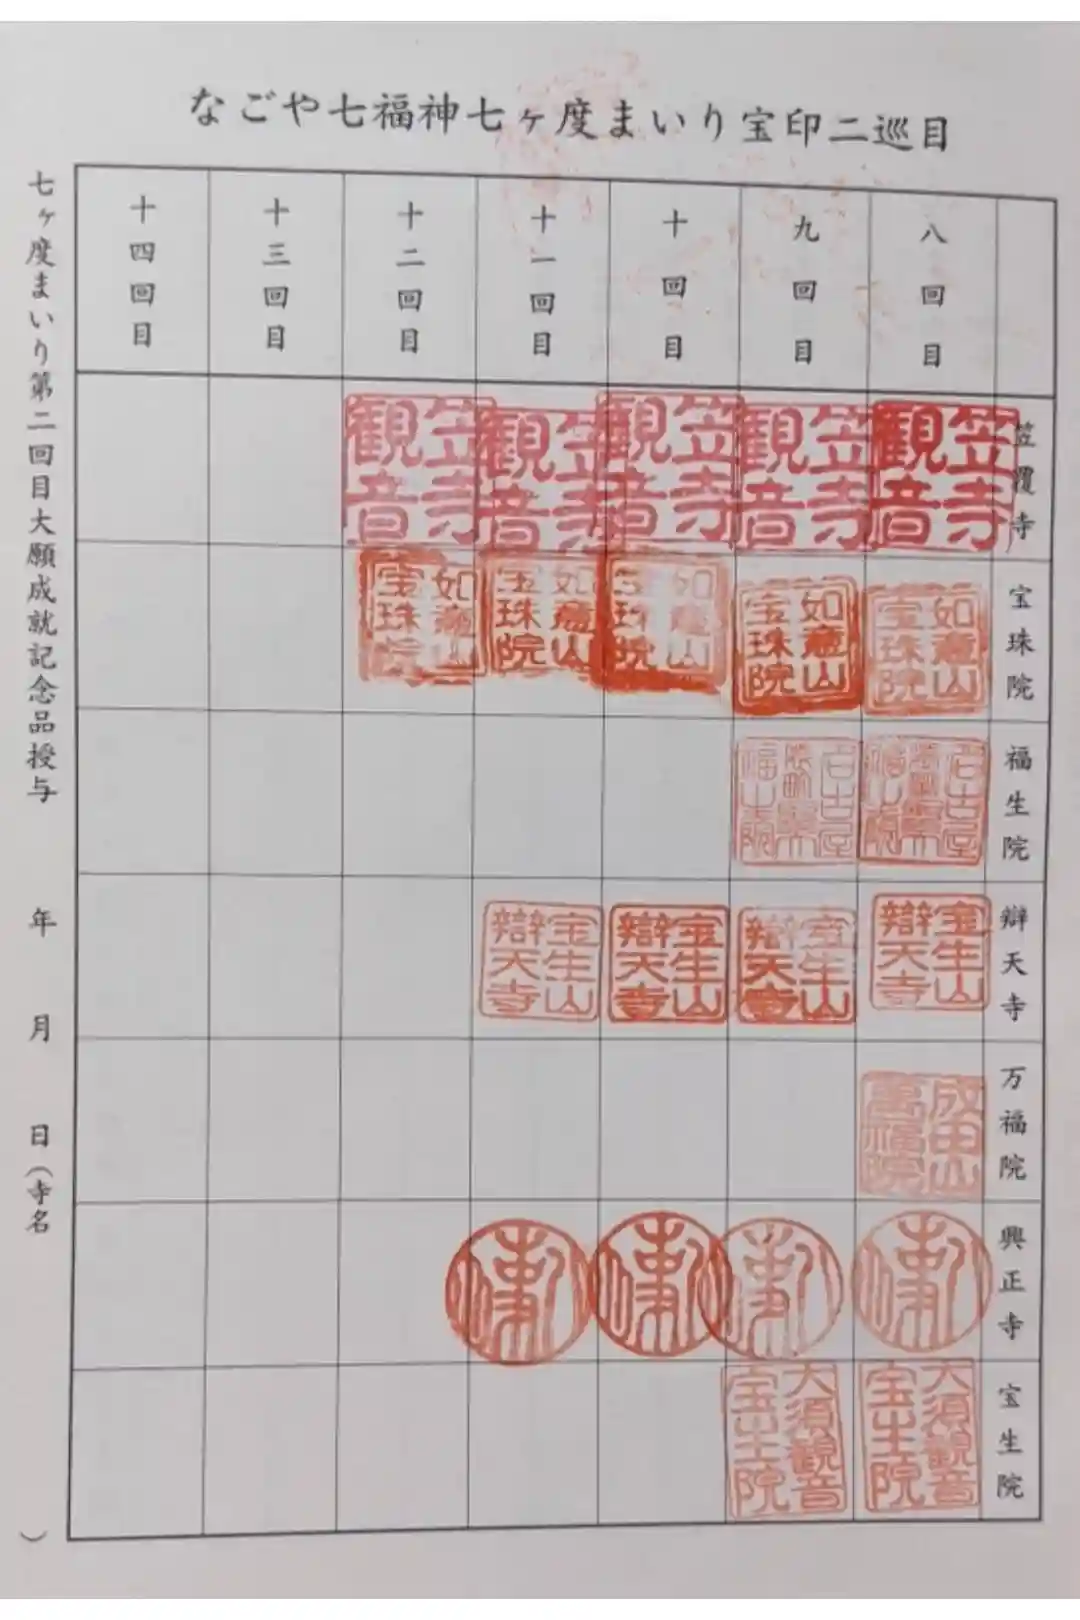 なごや七福神七ヶ度まいり宝印二巡目
八回目
九回目
十回目
十一回目
十二回目
十三回目
十四回目
笠覆寺
笠寺観音
笠寺観音
笠寺観音
笠寺観音
笠寺観音
宝珠院
如意山宝珠院
如意山宝珠院
如意山宝珠院
如意山宝珠院
如意山宝珠院
福生院
辯天寺
宝生山辯天寺
宝生山辯天寺
宝生山辯天寺
宝生山辯天寺
万福院
成田山萬福院
興正寺
宝生院
大須観音宝生院
大須観音宝生院
七ヶ度まいり第二回目大願成就記念品授与 年 月 日(寺名 )